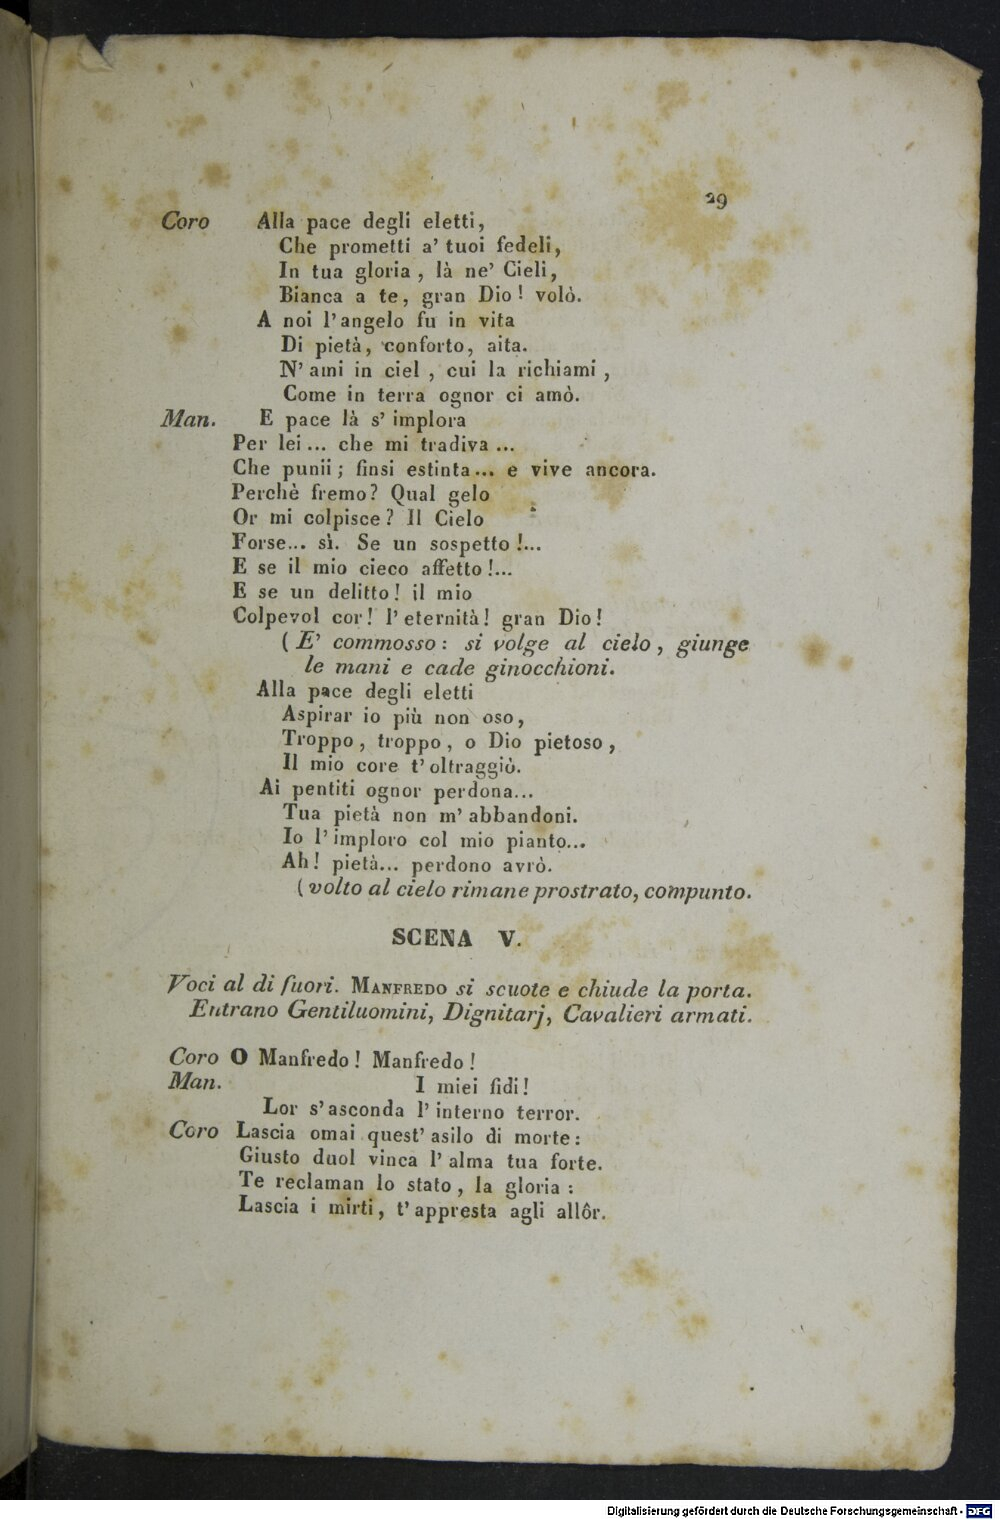 29
Coro Alla pace degli eletti,
Che prometti a' tuoi fedeli,
In tua gloria, là ne' Cieli,
Bianca a te, gran Dio! volò.
A noi l'angelo fu in vita
Di pietà, conforto, aita.
N' ami in ciel, cui la richiami,
Come in terra ognor ci amò.
Man. E pace là s' implora
Per lei... che mi tradiva...
Che punii; finsi estinta... e vive ancora.
Perchè fremo? Qual gelo
Or mi colpisce? Il Cielo
Forse... sì. Se un sospetto!...
E se il mio cieco affetto!...
E se un delitto! il mio
Colpevol cor! l' eternità! gran Dio!
(E' commosso: si volge al cielo, giunge
le mani e cade ginocchioni.
Alla pace degli eletti
Aspirar io più non oso,
Troppo, troppo, o Dio pietoso,
Il mio core t' oltraggiò.
Ai pentiti ognor perdona...
Tua pietà non m' abbandoni.
Io l' imploro col mio pianto...
Ah! pietà... perdono avrò.
(volto al cielo rimane prostrato, compunto.
SCENA V.
Voci al di fuori. MANFREDO si scuote e chiude la porta.
Entrano Gentiluomini, Dignitarj, Cavalieri armati.
Coro O Manfredo! Manfredo!
Man. I miei fidi!
Lor s' asconda l' interno terror.
Coro Lascia omai quest' asilo di morte:
Giusto duol vinca l' alma tua forte.
Te reclaman lo stato, la gloria:
Lascia i mirti, t' appresta agli allôr.
Digitalisierung gefördert durch die Deutsche Forschungsgemeinschaft - DFG